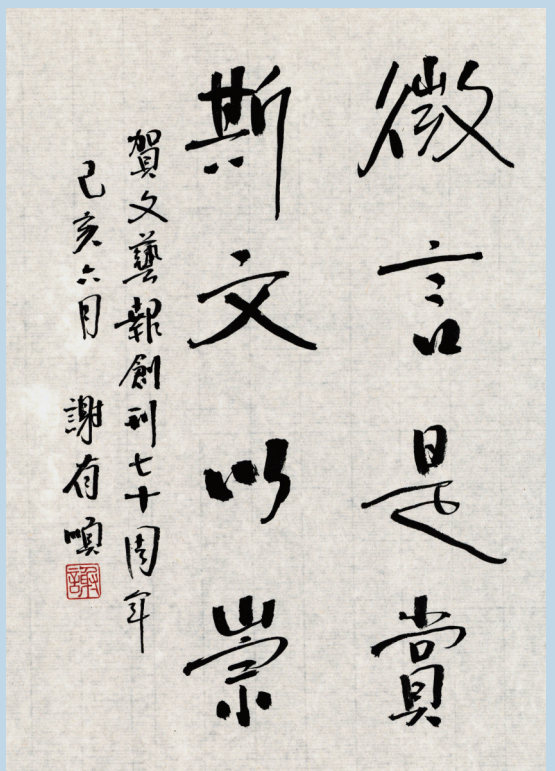 微言是賞
斯文以崇
賀文藝報創刊七十周年
己亥六月 謝有順
謝